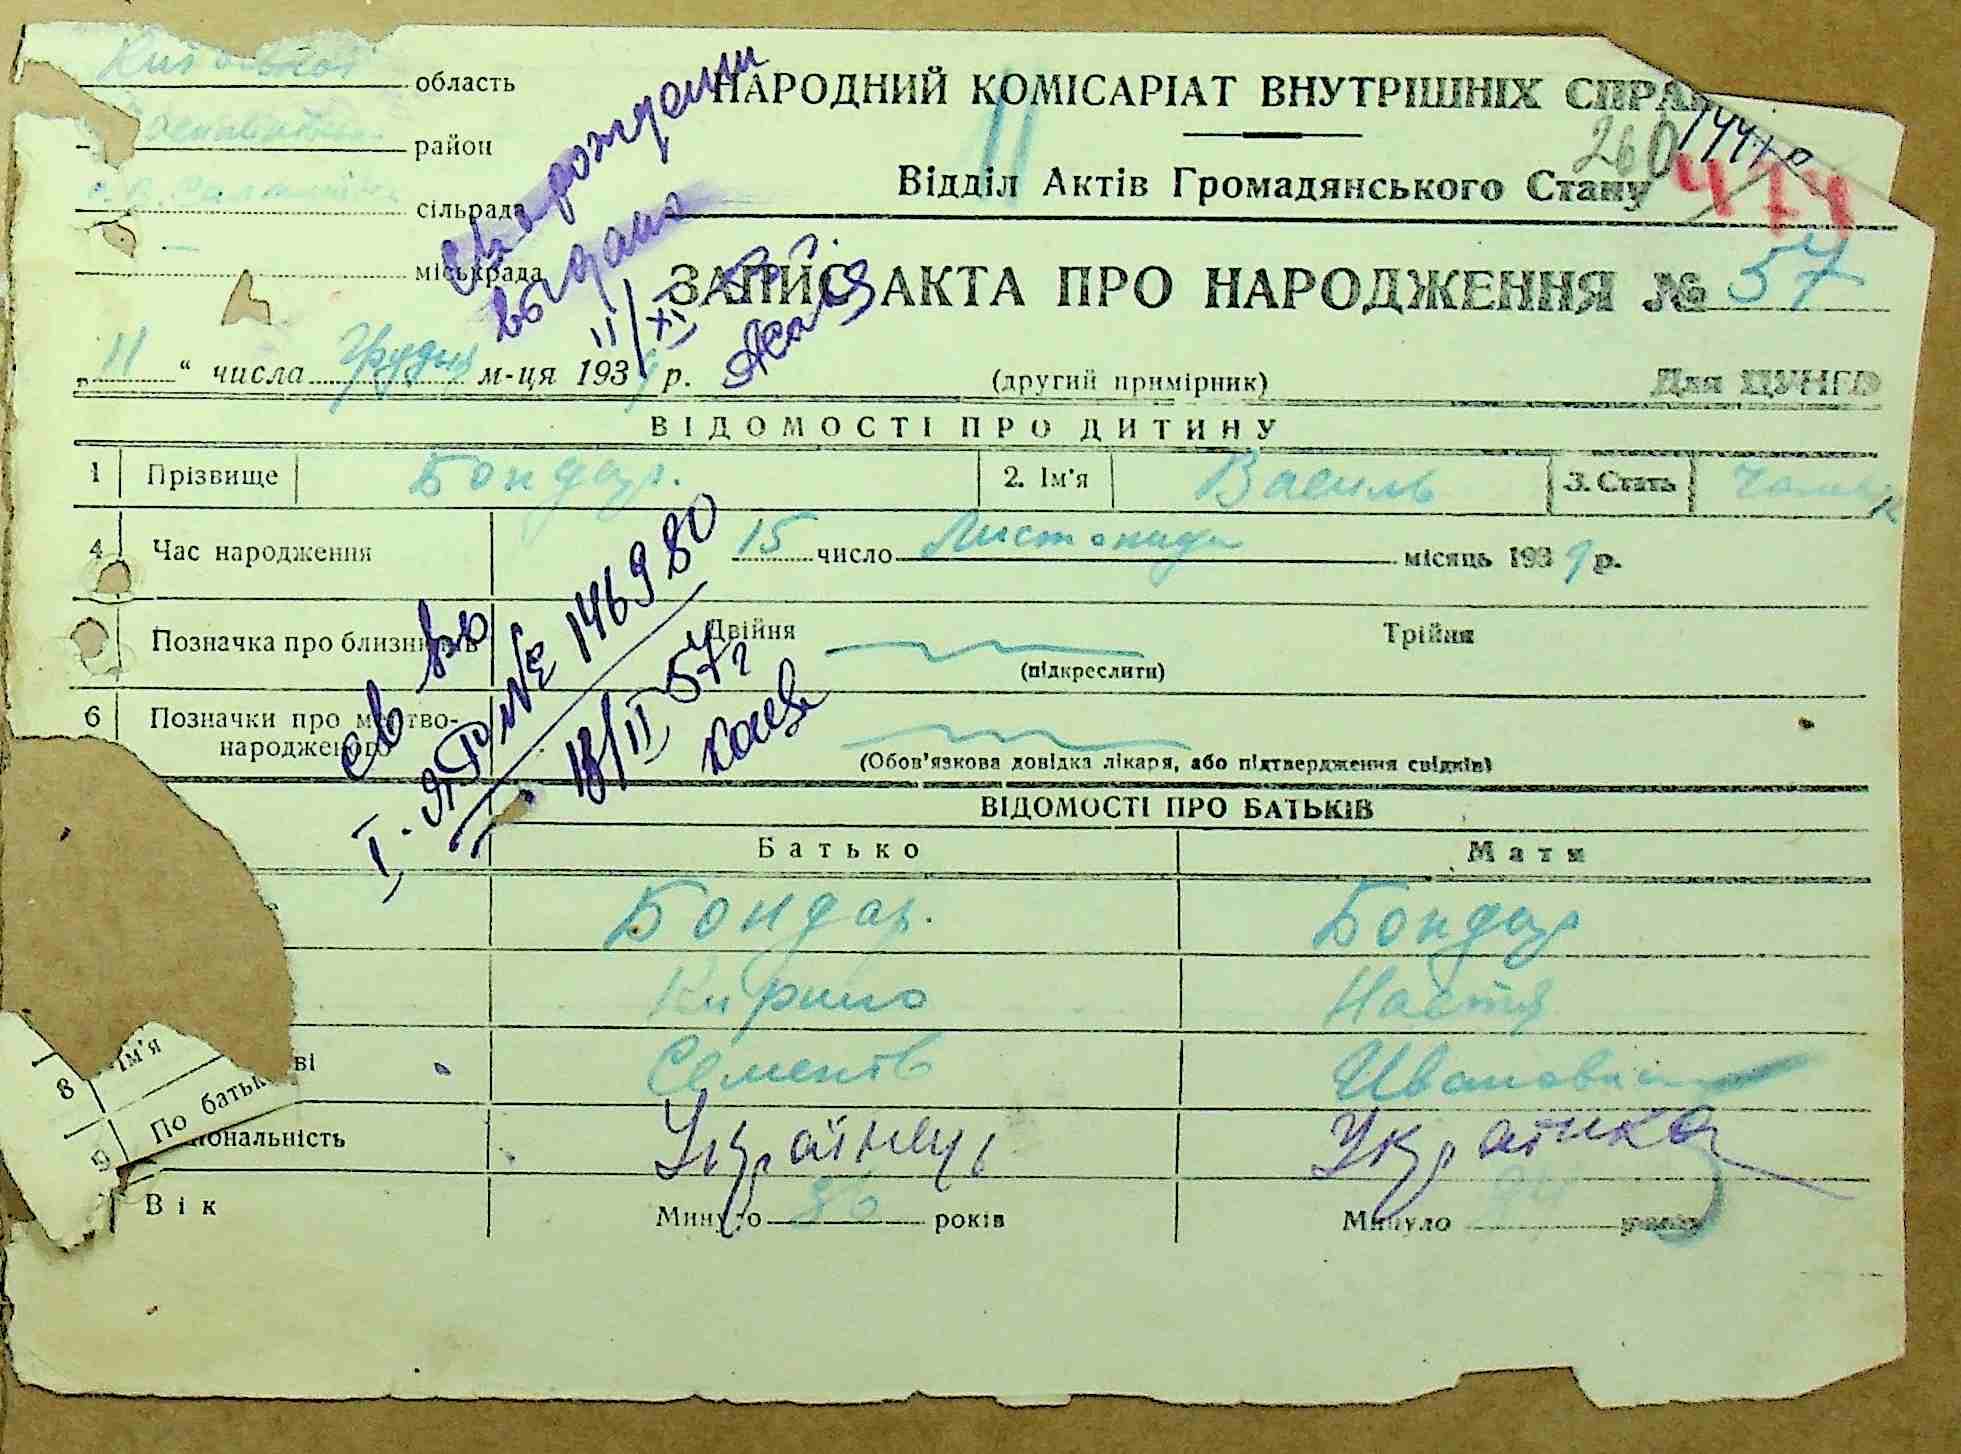 область
НАРОДНИЙ КОМІСАРІАТ ВНУТРІШНІХ СПРА
район
260
474
Відділ Актів Громадянського Стану
сільрада
міськрада
ЗАПИС АКТА ПРО НАРОДЖЕННЯ № 57
„ 11 “ числа Грудня м-ця 1939 р.
(другий примірник)
Для ЦУНГО
св. о рождении
выдано
11/XI
ВІДОМОСТІ ПРО ДИТИНУ
1 Прізвище Бондар. 2. Ім'я Василь 3. Стать
4 Час народження 15 число Листопада місяць 1939 р.
Позначка про близнюків Двійня Трійня
(підкреслити)
6 Позначки про мертво-
народженого
(Обов'язкова довідка лікаря, або підтвердження свідків)
св во
№ 146980
18/II 57г
ВІДОМОСТІ ПРО БАТЬКІВ
Батько Мати
Бондар. Бондар
Кирило Настя
8 Ім'я
Семенів Ивановна
9 По батькові
іональність Українець Українка
Вік Минуло 36 років Минуло років